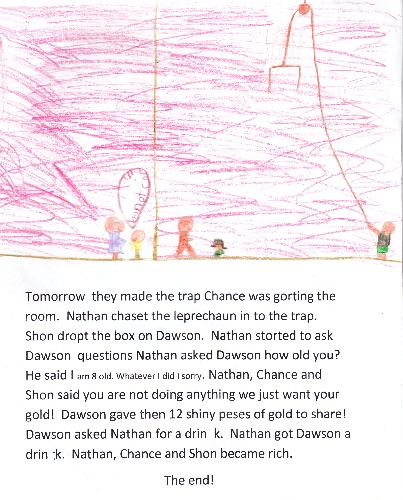 Tomorrow they made the trap Chance was gorting the
room. Nathan chaset the leprechaun in to the trap.
Shon dropt the box on Dawson. Nathan storted to ask
Dawson questions Nathan asked Dawson how old you?
He said I am 8 old. Whatever I did I sorry. Nathan, Chance and
Shon said you are not doing anything we just want your
gold! Dawson gave then 12 shiny peses of gold to share!
Dawson asked Nathan for a drin k. Nathan got Dawson a
drin :k. Nathan, Chance and Shon became rich.
The end!